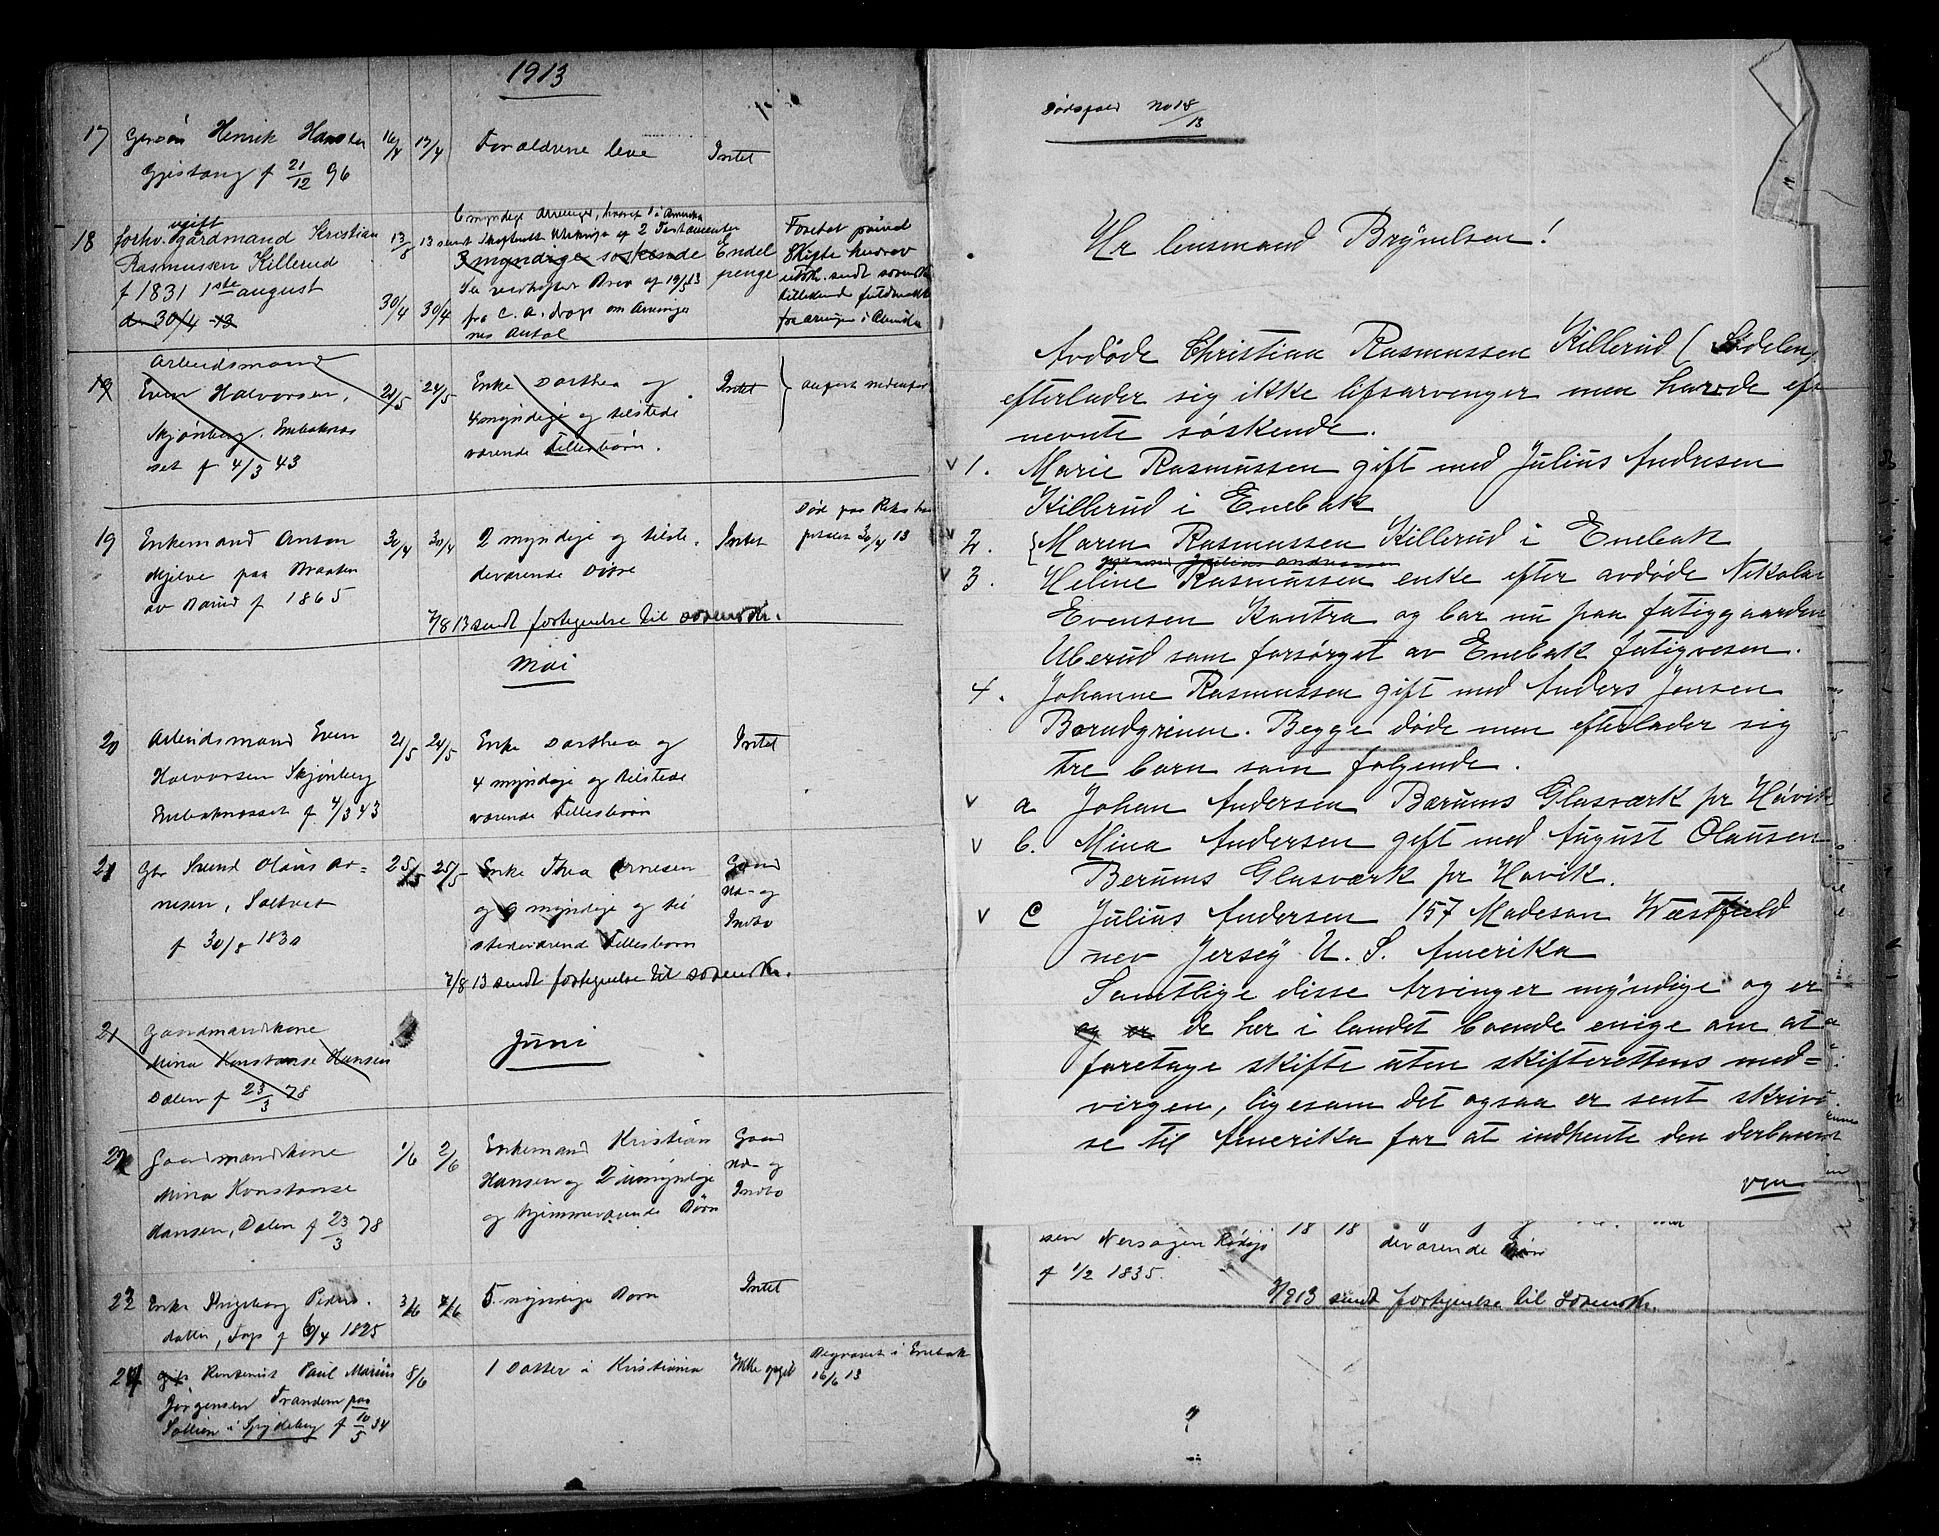 1913
17 Henrik Hansen 16/4 17/4 Forældrene leve Intet
Gjestang f 21/12 96
18 forhv. ugift gårdmand Kristian
Rasmussen Killerud
f 1831 1ste august
d. 30/4 13
13/8 13 sendt
30/4 30/4
6 myndige Arvinger, hvorav 1 i Amerika
3 myndige søskende
Se vedheftet Brev af 19/5 13
fra C. A. om Arvinger
nes Antal
Endel
penge
19 Arbeidsmand
Even Halvorsen,
Skjønberg, Enebaknes
set f 4/3 43
21/5 24/5
Enke Dorthea og
4 myndige og tilstede
værende Fellesbørn.
Intet
anført nedenfor
19 Enkemand Anton
paa Braaten
av f 1865
30/4 30/4 2 myndige og tilste.
deværende Børn
Intet
Død paa Riks hos
pitalet 30/4 13
7/8 13 sendt fortegnelse til sorenskr.
Mai
20 Arbeidsmand Even
Halvorsen Skjønberg
Enebaknesset f. 4/3 43
21/5 24/5 Enke Dorthea og
4 myndige og tilstede
værende Fellesbørn
Intet
21 Olaus Ar=
nesen,
f 30/8 1830
25/5 25/5 Enke Thea Arnesen
og myndige og til
stedeværende Fellesbørn
Gaard
Ud- og
Indbo
7/8 13 sendt fortegnelse til sorenskr.
21 Gaardmandskone
Mina Konstanse Hansen
Dalen f 23/3 78
Juni
22 Gaardmandskone
Mina Konstanse
Hansen, Dalen f 23/3 78
1/6 2/6 Enkemand Kristian
Hansen og 2 umyndige
og hjemmeværende Børn
Gaard
Ud- og
Indbo
23 Enke Ingeborg Peders.
datter, f 6/4 1825
3/6 4/6 5 myndige Børn Intet
24 Rentenist Paul Marius
Jørgensen Trandem paa
Sollien i Spydeberg f 10/5 34
8/6 1 Datter i Kristiania Ikke opgit
Begravet i Enebak
16/6 13
Dødsfald No 18/13
Hr lensmand Brynelsen!
Avdøde Christian Rasmussen Killerud
efterlader sig ikke lifsarvenger men havde ef
nevnte søskende.
v 1. Marie Rasmussen gift med Julius Andresen
Killerud i Enebak
v 2. Maren Rasmussen Killerud i Enebak
v 3. Heline Rasmussen enke efter avdøde Nikolai
Evensen Kantra og bor nu paa fatiggaarden
Uberud som forsørget av Enebak fatigvesen.
4. Johanne Rasmussen gift med Anders Jensen
Børudgrinen. Begge døde men efterlader sig
tre barn som følgende.
v a Johan Andersen Bærums Glasværk pr Høvik
v b. Mina Andersen gift med August Olausen
Berums Glasværk pr Høvik.
v c Julius Andersen 157 Madeson Wæstfield
nev Jersey U. S. Amerika
Samtlige disse Arvinger myndige og er
og er de her i landet boende enige om at
foretage skifte uten skifterettens med=
virgen, ligesom det ogsaa er sent skrivel
se til Amerika for at indhente den derboende
ven
sen Nersagen
f 1/2 1835.
18 18
deværende Børn
9/9 13 sendt fortegnelse til Sorenskr.